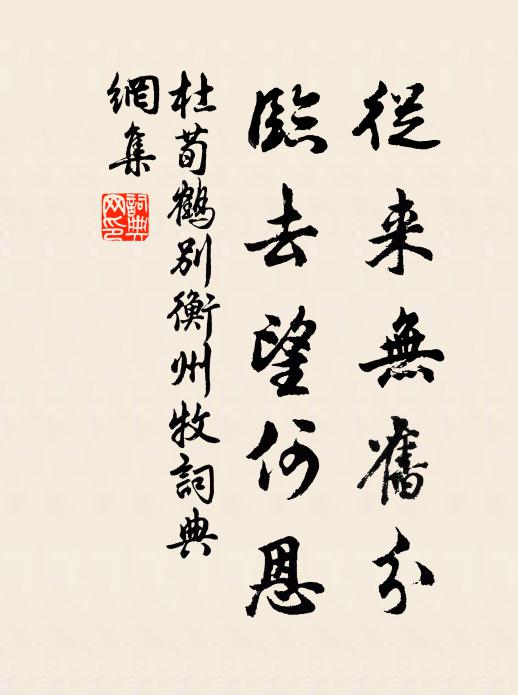 從来無舊分
臨去望何恩
杜荀鶴別衡州牧詞典
網集
詞典
网印